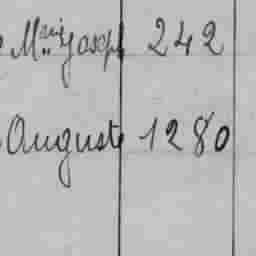 Marie Joseph 242
Auguste 1280